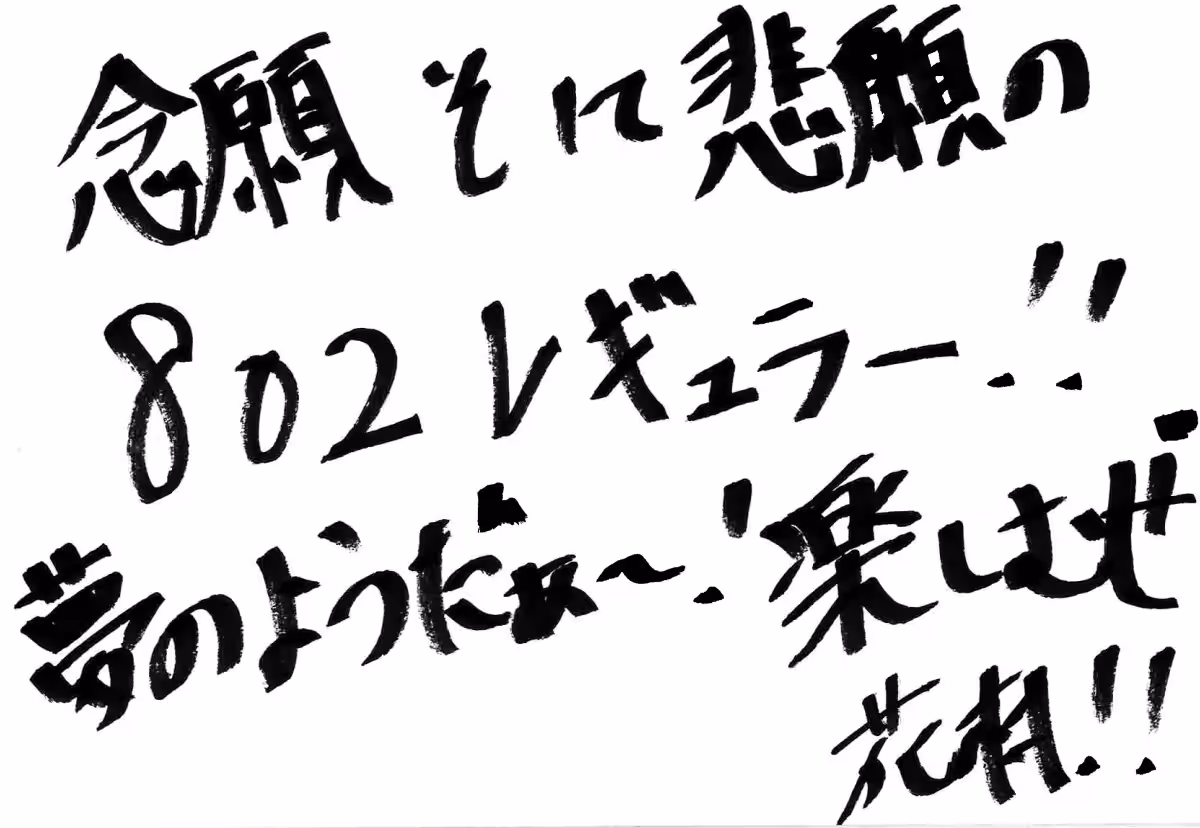 念願そに悲願の
802レギュラー!!
夢のようだぁ〜!楽しむぜ
花村!!